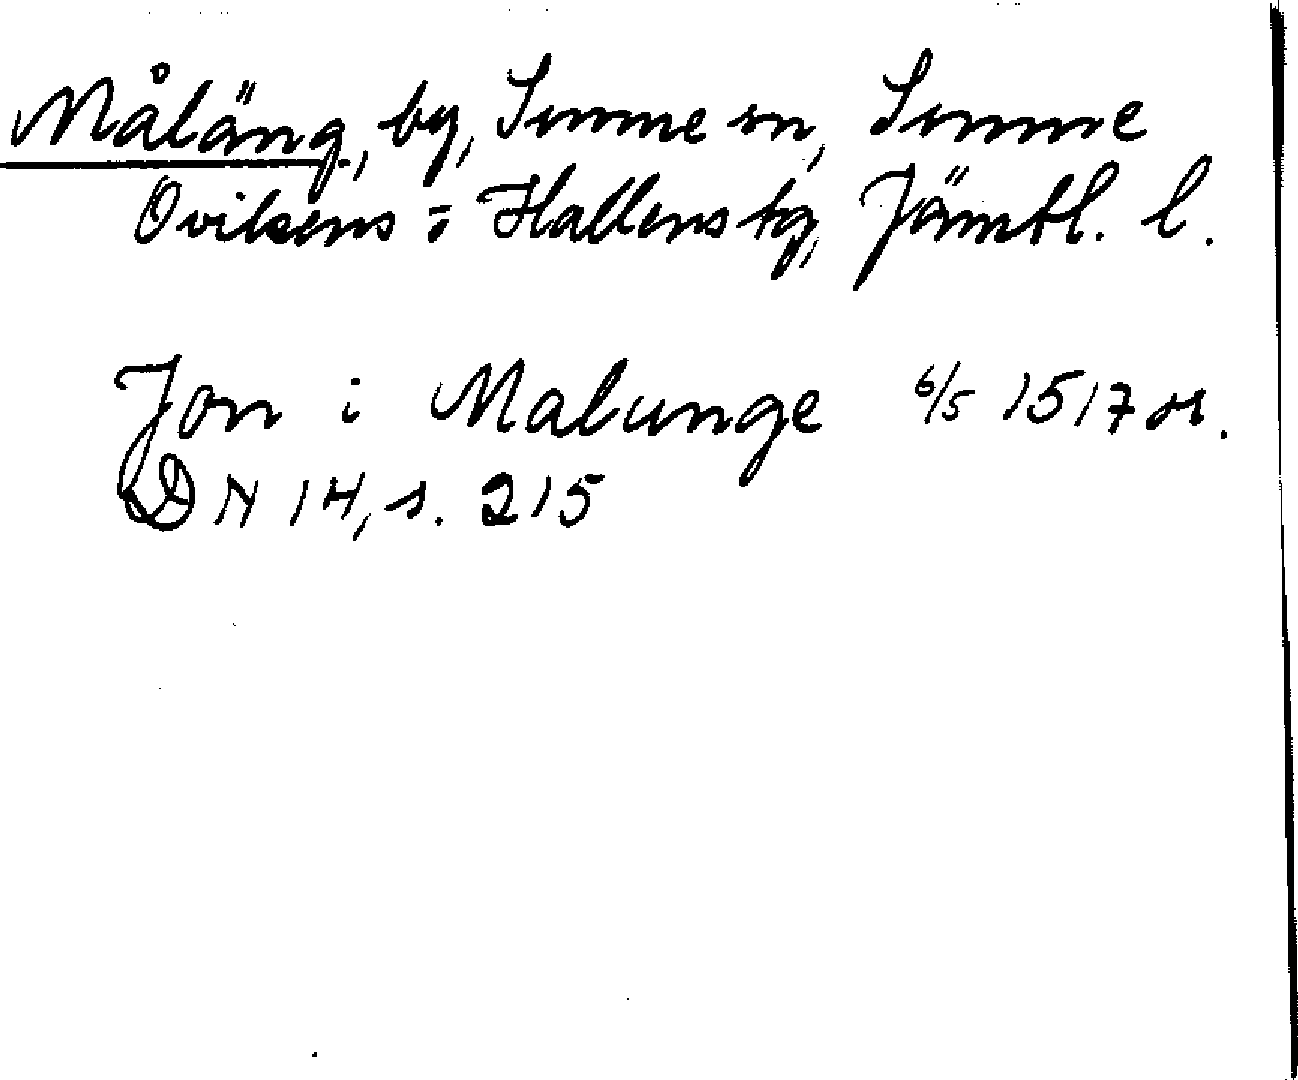 Måläng, by, Sunne sn, Sunne
Ovikens o Hallens tg, Jämtl. l.
Jon i Malunge 6/5 1517 or.
DN 14, s. 215